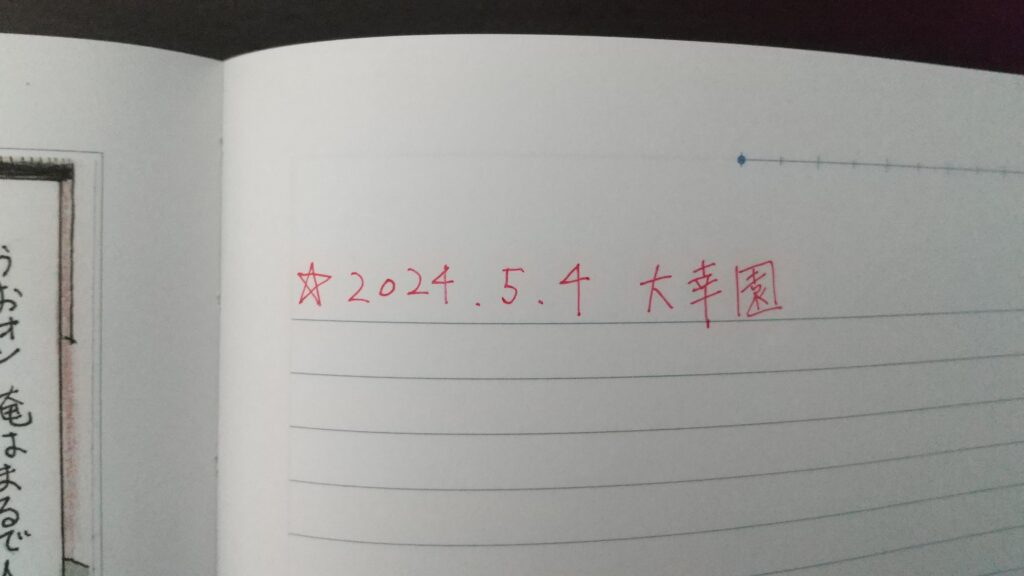 ☆2024.5.4 大幸園
うおオン 俺はまるで人